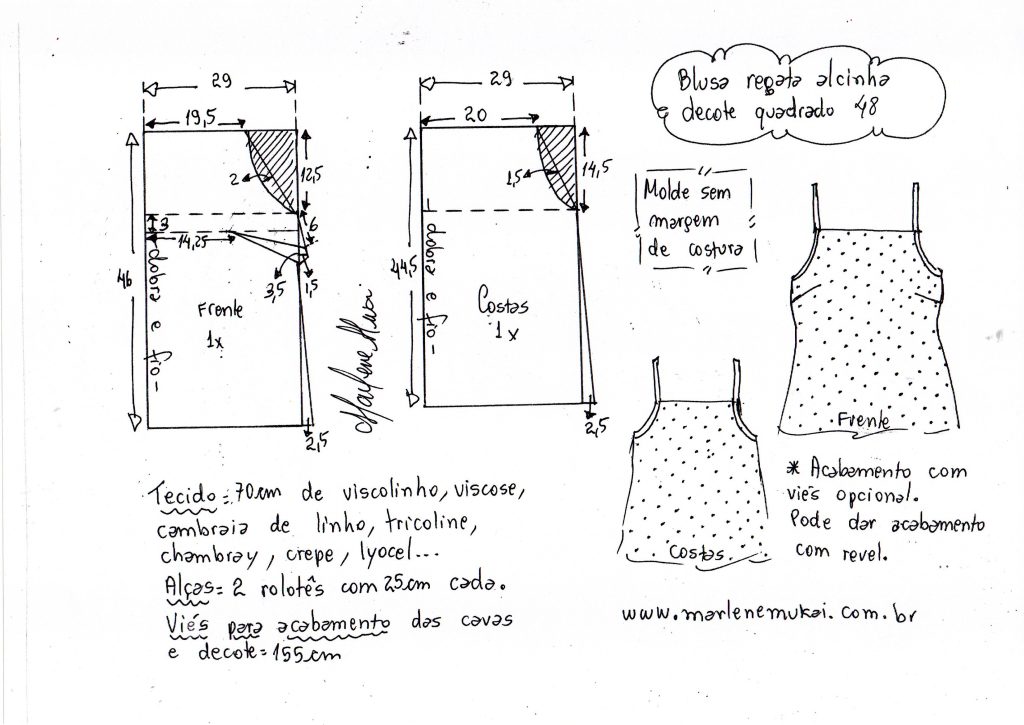 Blusa regata alcinha
e decote quadrado 48
29
19,5
2
12,5
3
14,25
6
3,5
1,5
46
dobra e fio
Frente
1x
2,5
Marlene Mukai
29
20
1,5
14,5
44,5
dobra e fio
Costas
1x
2,5
Molde sem
margem
de costura
Frente
Costas
* Acabamento com
viés opcional.
Pode dar acabamento
com revel.
Tecido = 70cm de viscolinho, viscose,
cambraia de linho, tricoline,
chambray, crepe, lyocel...
Alças = 2 rolotês com 25cm cada.
Viés para acabamento das cavas
e decote = 155cm
www.marlenemukai.com.br